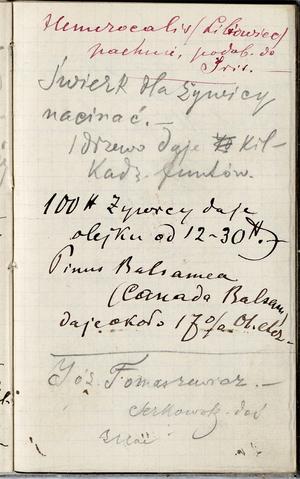 Hemerocalis (Liliowiec)
pachnie, podob. do
Iris.
Świerk dla żywicy
nacinać. –
1 drzewo daje kil-
kadz. funtów.
100 ℔ Żywicy daje
olejku od 12–30 ℔.
Pinus Balsamea
(Canada Balsam)
daje około 17% Ol. eter.
Józ. Tomaszewicz. –